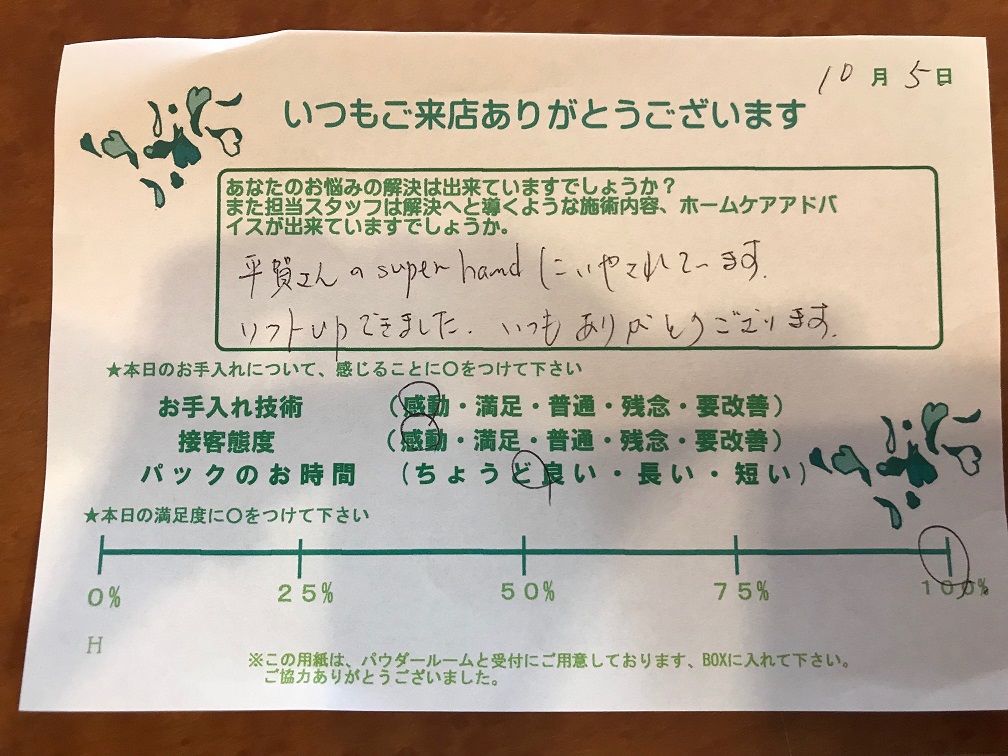 10月5日
いつもご来店ありがとうございます
あなたのお悩みの解決は出来ていますでしょうか？
また担当スタッフは解決へと導くような施術内容、ホームケアアドバ
イスが出来ていますでしょうか。
平賀さんのsuper handにいやされています.
リフトupできました. いつもありがとうございます.
★本日のお手入れについて、感じることに〇をつけて下さい
お手入れ技術 （感動・満足・普通・残念・要改善）
接客態度 （感動・満足・普通・残念・要改善）
パックのお時間 （ちょうど良い・長い・短い）
★本日の満足度に〇をつけて下さい
0% 25% 50% 75% 100%
H
※この用紙は、パウダールームと受付にご用意しております、BOXに入れて下さい。
ご協力ありがとうございました。